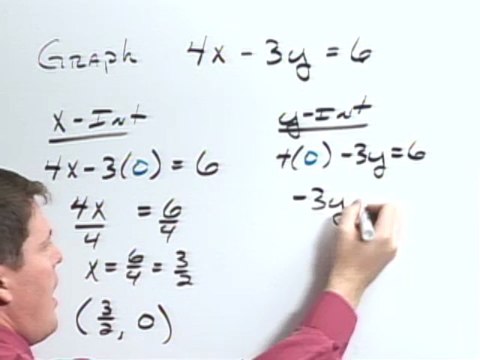 Graph 4x - 3y = 6
x-Int
4x - 3(0) = 6
4x/4 = 6/4
x = 6/4 = 3/2
(3/2, 0)
y-Int
4(0) - 3y = 6
-3y